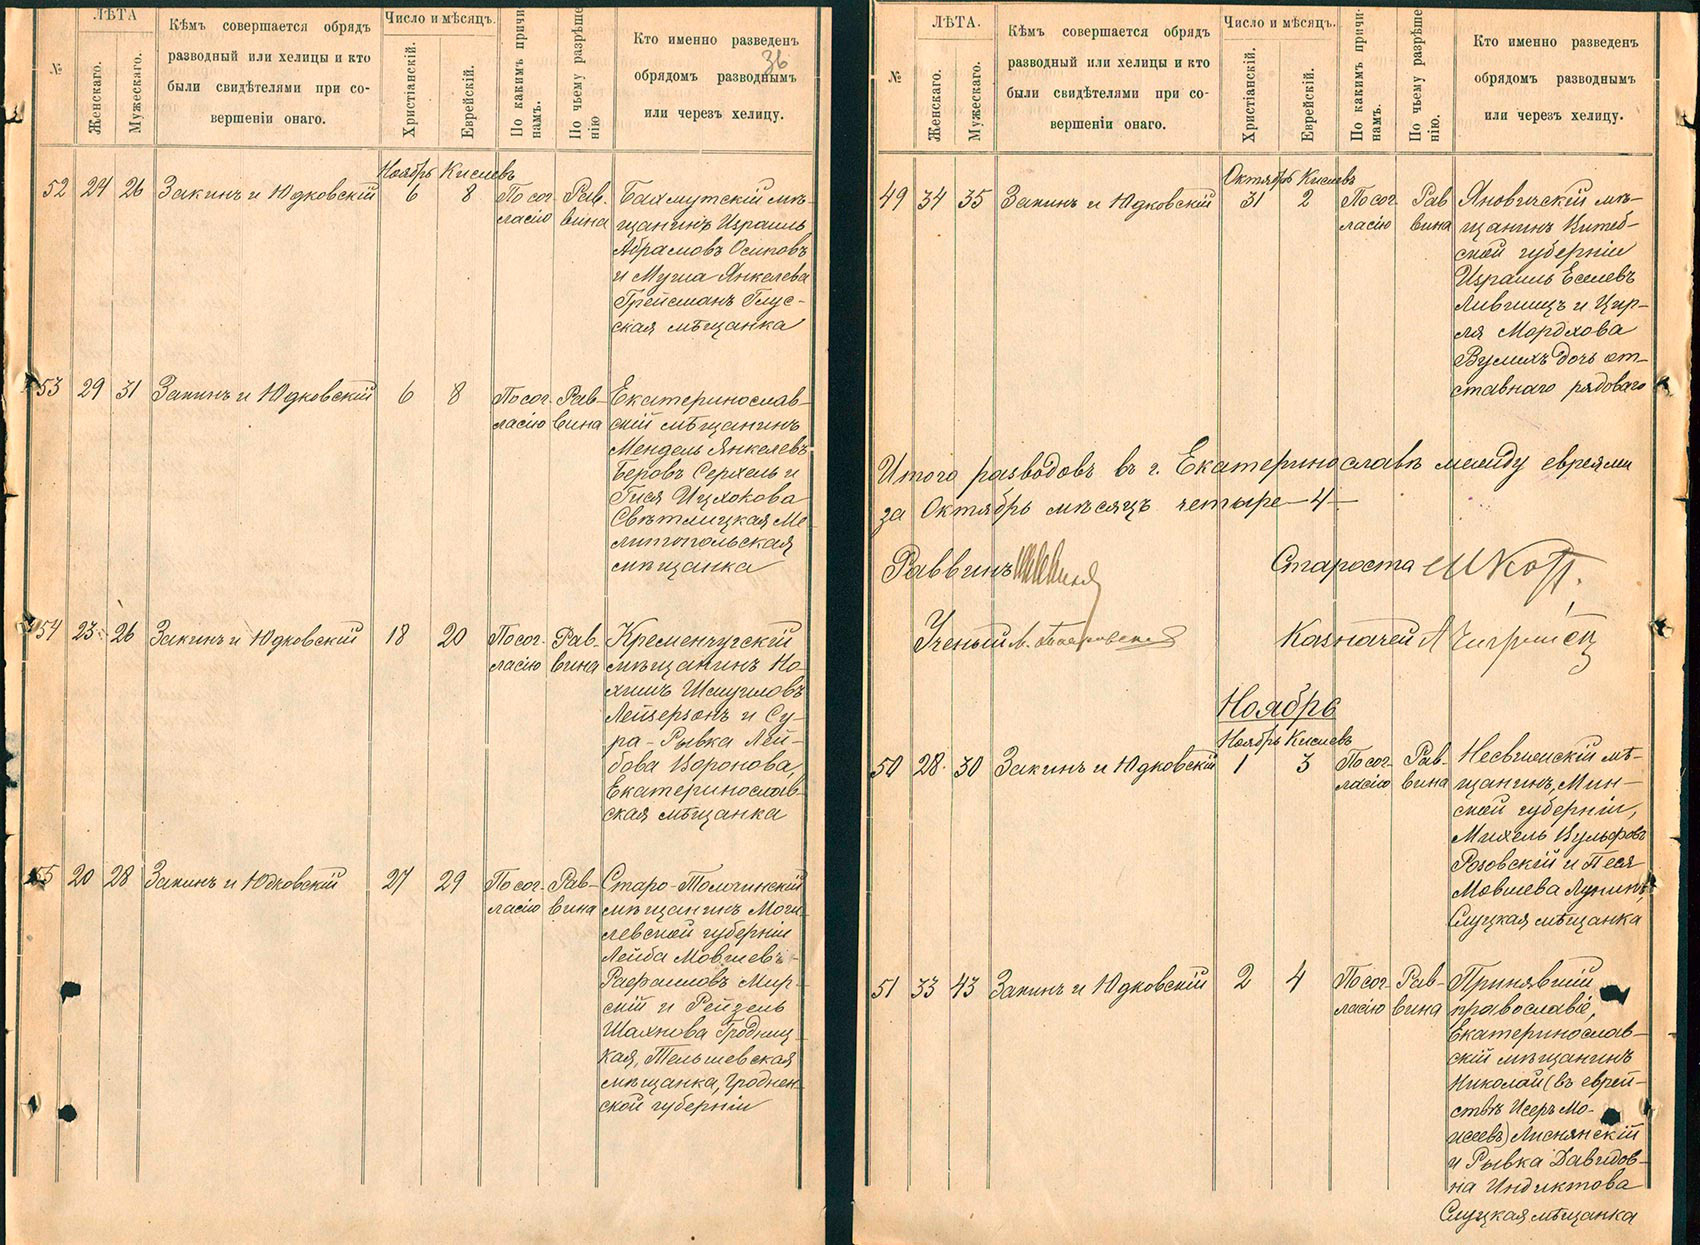 №
ЛѢТА
Женскаго.
Мужескаго.
Кѣмъ совершается обрядъ
разводный или хелицы и кто
были свидѣтелями при со-
вершеніи онаго.
Число и мѣсяцъ.
Христіанскій.
Еврейскій.
По какимъ причи-
намъ.
По чьему разрѣше
нію
Кто именно разведенъ
36
обрядомъ разводнымъ
или черезъ хелицу.
Ноябрь Кислевъ
52 24 26 Закинъ и Юдковскій 6 8 По сог- Рав-
ласію вина
Бахмутскій мѣ-
щанинъ Израиль
Абрамовъ Осиповъ
и Муша Янкелева
Грейсманъ Глус-
ская мѣщанка
53 29 31 Закинъ и Юдковскій 6 8 По сог- Рав-
ласію вина
Екатеринослав-
скій мѣщанинъ
Мендель Янкелевъ
Беровъ Серхель и
Гися Ицхокова
Свѣтлицкая Ме-
литопольская
мѣщанка
54 23 26 Закинъ и Юдковскій 18 20 По сог- Рав-
ласію вина
Кременчугскій
мѣщанинъ Но-
химъ Шмуиловъ
Лейзерзонъ и Су-
ра-Рывка Лей-
бова Воронова,
Екатеринослав-
ская мѣщанка
55 20 28 Закинъ и Юдковскій 27 29 По сог- Рав-
ласію вина
Старо-Толочинскій
мѣщанинъ Моги-
левской губерніи
Лейба Мовшевъ-
Рафаиловъ Мир-
скій и Рейзель
Шахнова Гродниц-
кая, Тельшевская
мѣщанка, Гроднен-
ской губерніи
№
ЛѢТА.
Женскаго.
Мужескаго.
Кѣмъ совершается обрядъ
разводный или хелицы и кто
были свидѣтелями при со-
вершеніи онаго.
Число и мѣсяцъ.
Христіанскій.
Еврейскій.
По какимъ причи-
намъ.
По чьему разрѣше
нію.
Кто именно разведенъ
обрядомъ разводнымъ
или черезъ хелицу.
Октябрь Кислевъ
49 34 35 Закинъ и Юдковскій 31 2 По сог- Рав
ласію вина
Яновичскій мѣ-
щанинъ Витеб-
ской губерніи
Израиль Еселевъ
Лившицъ и Цир-
ля Мордхова
Вулихъ дочь от-
ставнаго рядоваго
Итого разводовъ въ г. Екатеринославѣ между евреями
за Октябрь мѣсяцъ четыре —4—
Раввинъ
Староста
Ученый
Казначей
Ноябрь
Ноябрь Кислевъ
50 28 30 Закинъ и Юдковскій 1 3 По сог- Рав-
ласію вина
Несвижскій мѣ-
щанинъ, Мин-
ской губерніи,
Михель Вульфовъ
Розовскій и Песя
Мовшева Лунинъ,
Слуцкая мѣщанка
51 33 43 Закинъ и Юдковскій 2 4 По сог- Рав-
ласію вина
Принявшій
православіе,
Екатеринослав-
скій мѣщанинъ
Николай (въ еврей-
ствѣ Исеръ Мо-
исеевъ) Лиснянскій
и Рывка Давидов-
на Индиктова
Слуцкая мѣщанка